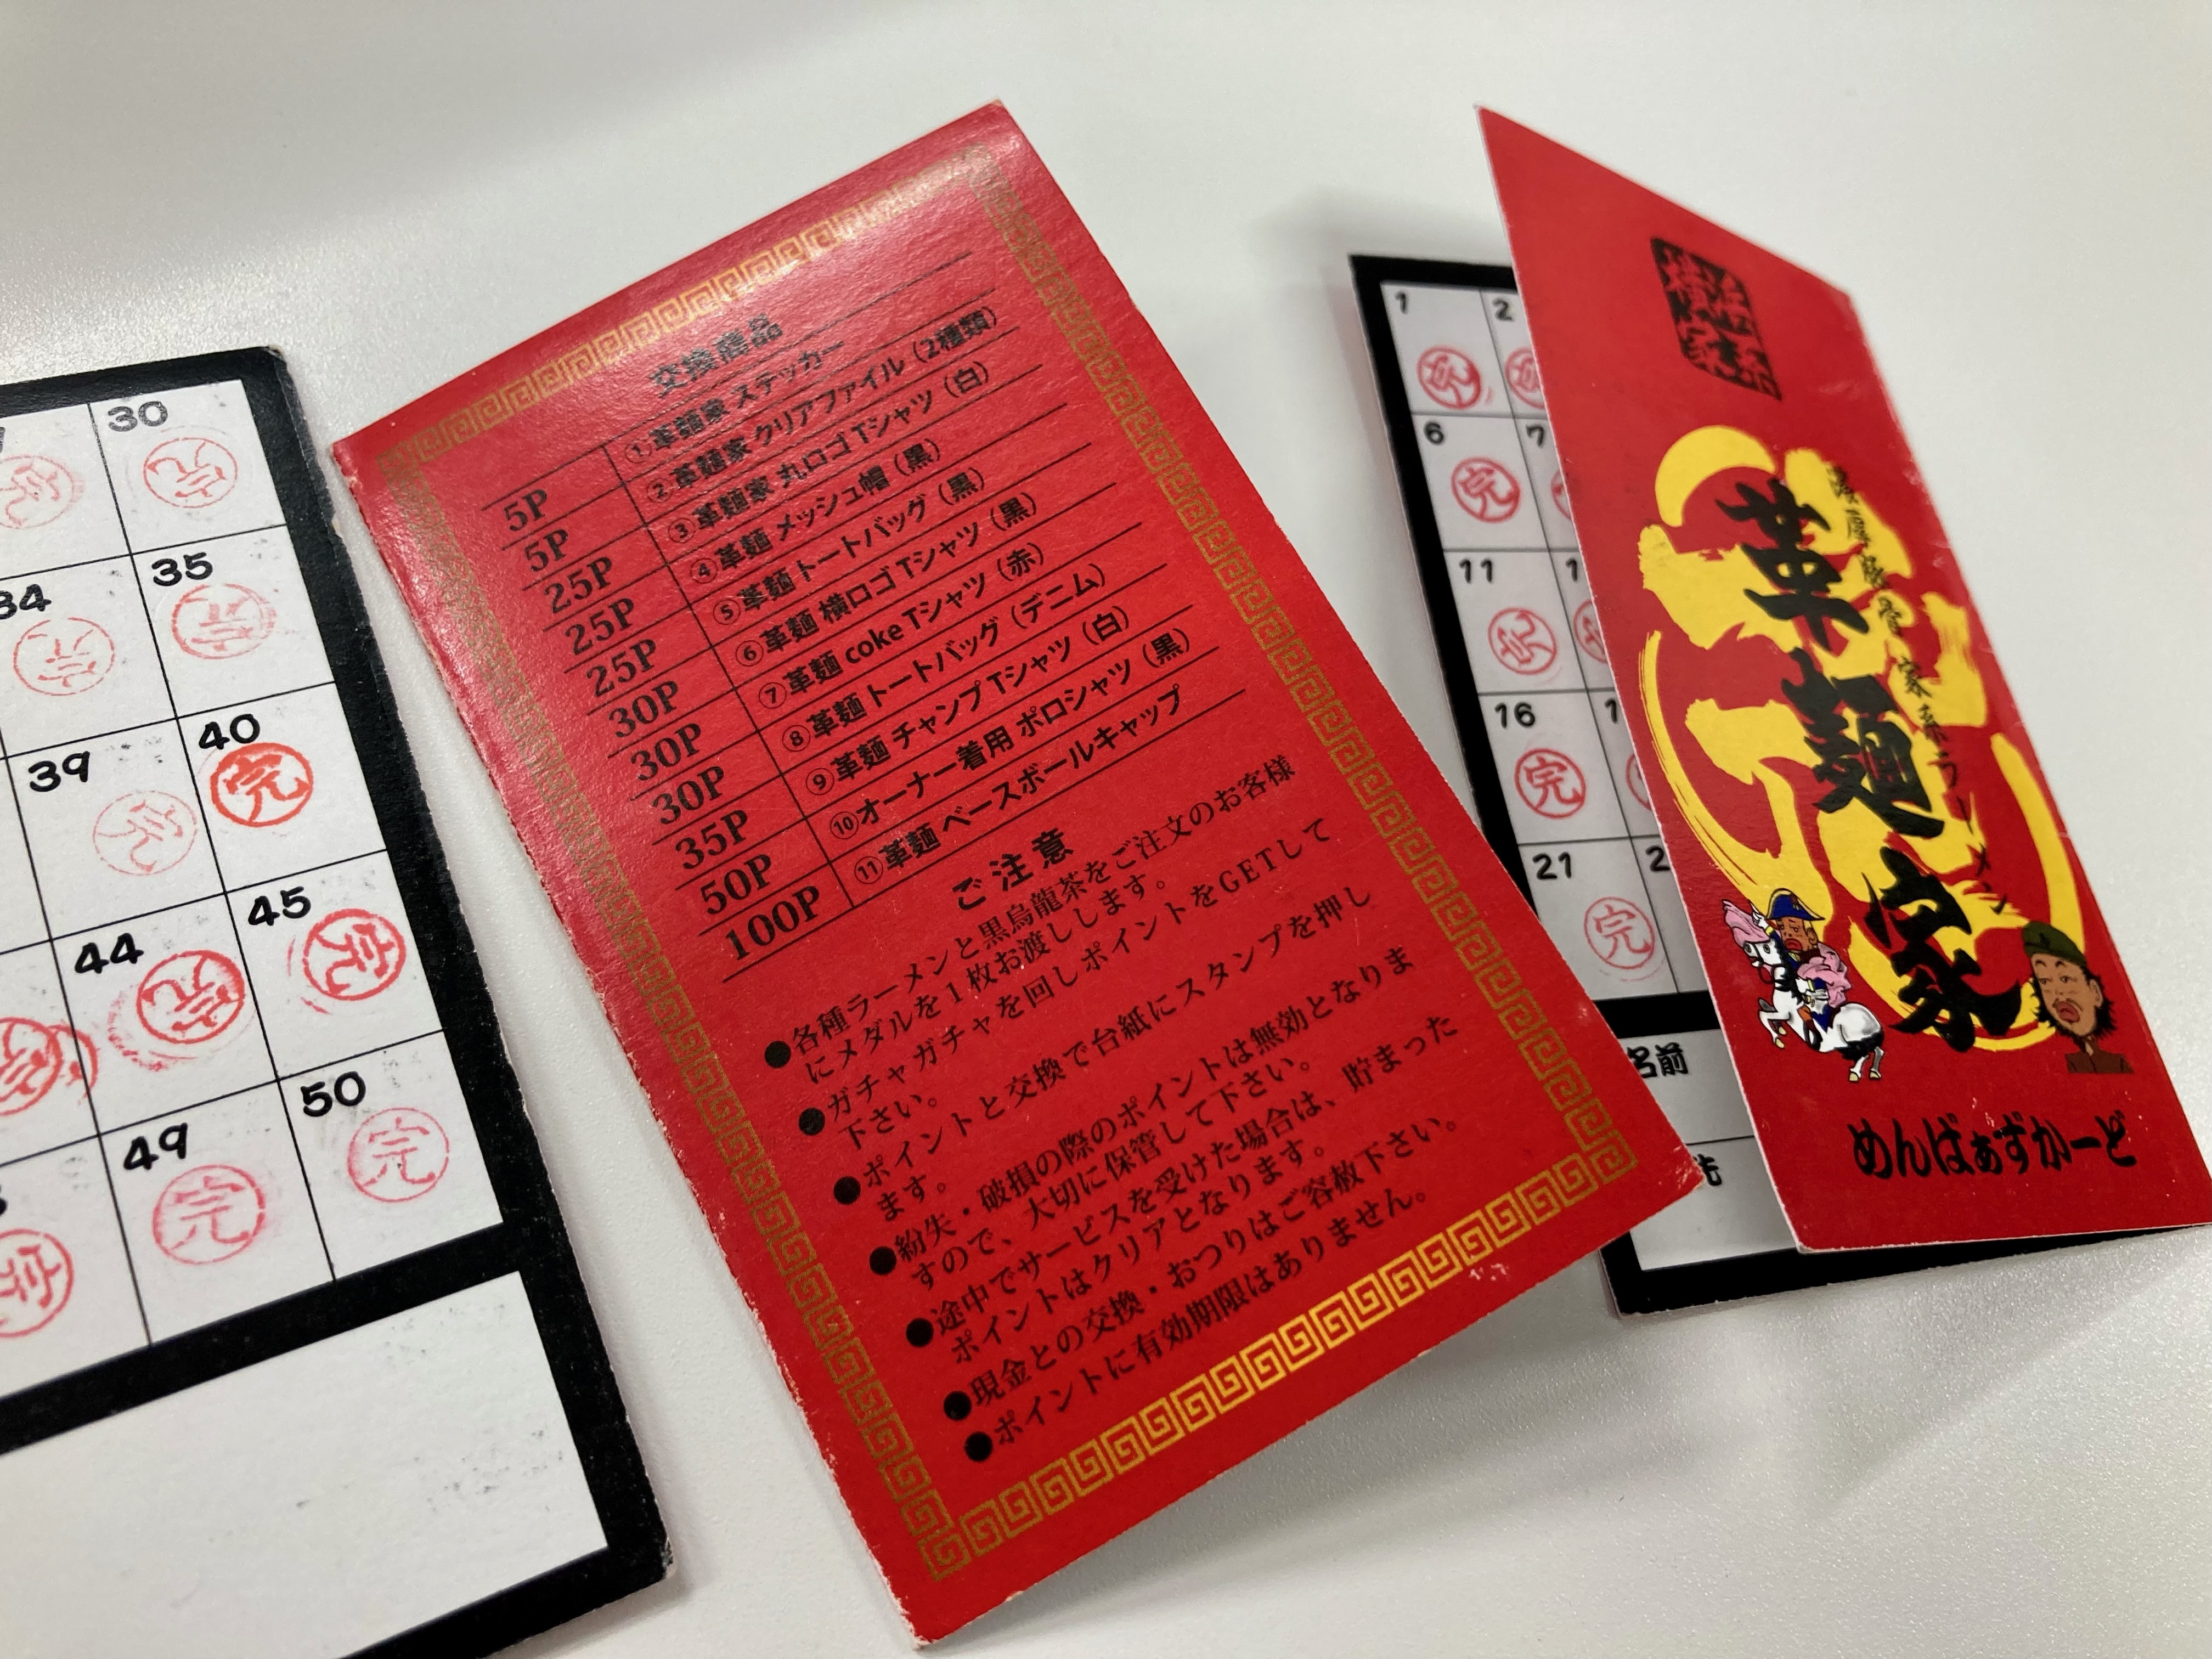 30
34
35
39
40
完
44
完
45
完
49
完
50
完
交換商品
5P ①革麺家 ステッカー
5P ②革麺家 クリアファイル（2種類）
25P ③革麺家 丸ロゴTシャツ（白）
25P ④革麺 メッシュ帽（黒）
25P ⑤革麺 トートバッグ（黒）
30P ⑥革麺 横ロゴTシャツ（黒）
30P ⑦革麺 coke Tシャツ（赤）
30P ⑧革麺 トートバッグ（デニム）
35P ⑨革麺 チャンプTシャツ（白）
50P ⑩オーナー着用 ポロシャツ（黒）
100P ⑪革麺 ベースボールキャップ
ご注意
●各種ラーメンと黒烏龍茶をご注文のお客様
にメダルを1枚お渡しします。
●ガチャガチャを回しポイントをGETして
下さい。
●ポイントと交換で台紙にスタンプを押し
ます。
●紛失・破損の際のポイントは無効となりま
すので、大切に保管して下さい。
●途中でサービスを受けた場合は、貯まった
ポイントはクリアとなります。
●現金との交換・おつりはご容赦下さい。
●ポイントに有効期限はありません。
1
2
6
完
7
11
完
16
完
21
完
名前
革麺家
家系ラーメン
めんばぁずかーど